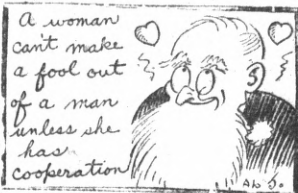 A woman
can't make
a fool out
of a man
unless she
has
cooperation